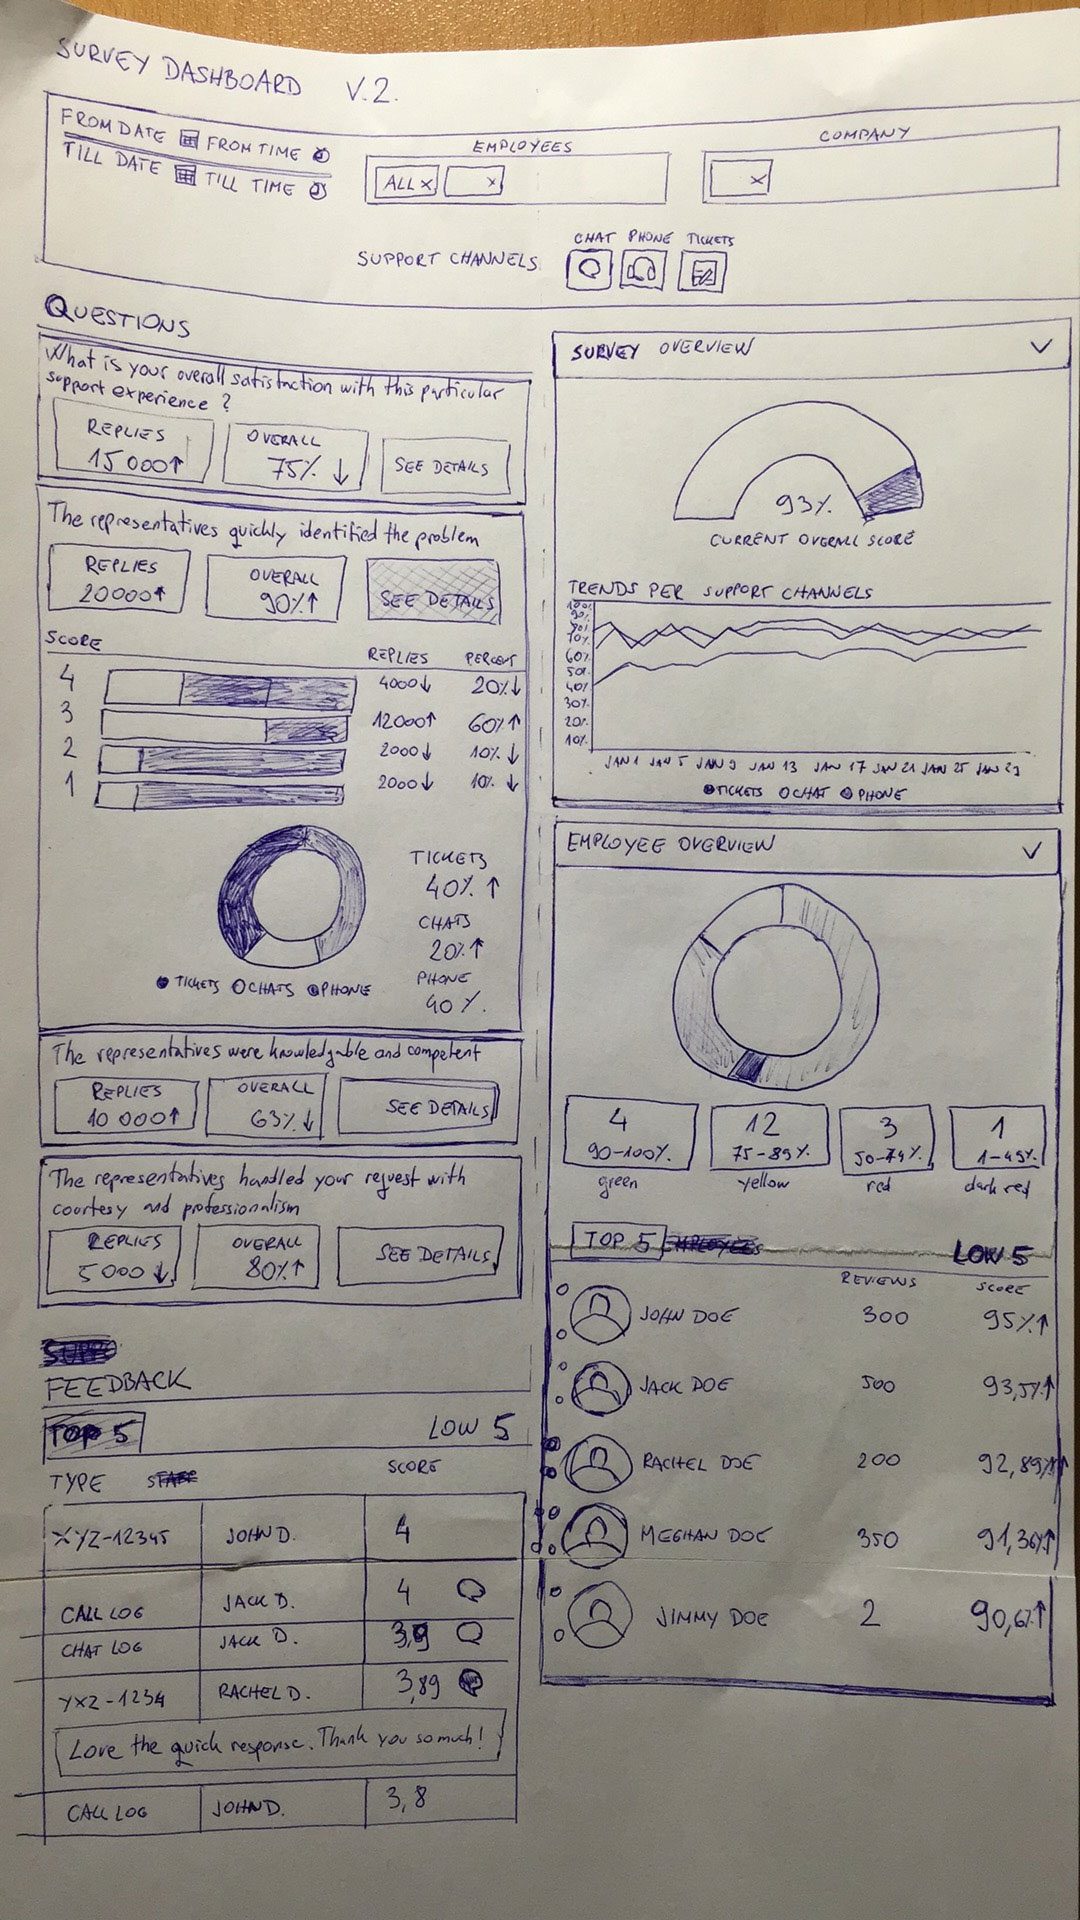 SURVEY DASHBOARD V.2.
FROM DATE FROM TIME
TILL DATE TILL TIME
EMPLOYEES
ALL x x
COMPANY
x
SUPPORT CHANNELS
CHAT PHONE TICKETS
QUESTIONS
What is your overall satisfaction with this particular
support experience ?
REPLIES
15 000↑
OVERALL
75% ↓
SEE DETAILS
The representatives quickly identified the problem
REPLIES
20000↑
OVERALL
90%↑
SEE DETAILS
SCORE REPLIES PERCENT
4 4000↓ 20%↓
3 12000↑ 60%↑
2 2000↓ 10%↓
1 2000↓ 10%↓
TICKETS
40% ↑
CHATS
20%↑
PHONE
40 %.
TICKETS CHATS PHONE
The representatives were knowledgable and competent
REPLIES
10 000↑
OVERALL
63%↓
SEE DETAILS
The representatives handled your request with
courtesy and professionalism
REPLIES
5 000↓
OVERALL
80%↑
SEE DETAILS
FEEDBACK
TOP 5 LOW 5
TYPE SCORE
XYZ-12345 JOHN D. 4
CALL LOG JACK D. 4
CHAT LOG JACK D. 3,9
YXZ-1234 RACHEL D. 3,89
Love the quick response. Thank you so much!
CALL LOG JOHN D. 3,8
SURVEY OVERVIEW
93%
CURRENT OVERALL SCORE
TRENDS PER SUPPORT CHANNELS
100%
90%
80%
70%
60%
50%
40%
30%
20%
10%
JAN 1 JAN 5 JAN 9 JAN 13 JAN 17 JAN 21 JAN 25 JAN 29
TICKETS CHAT PHONE
EMPLOYEE OVERVIEW
4
90-100%
green
12
75-89%
yellow
3
50-74%
red
1
1-49%
dark red
TOP 5 EMPLOYEES LOW 5
REVIEWS SCORE
JOHN DOE 300 95%↑
JACK DOE 500 93,5%↑
RACHEL DOE 200 92,89%↑
MEGHAN DOE 350 91,36%↑
JIMMY DOE 2 90,6%↑